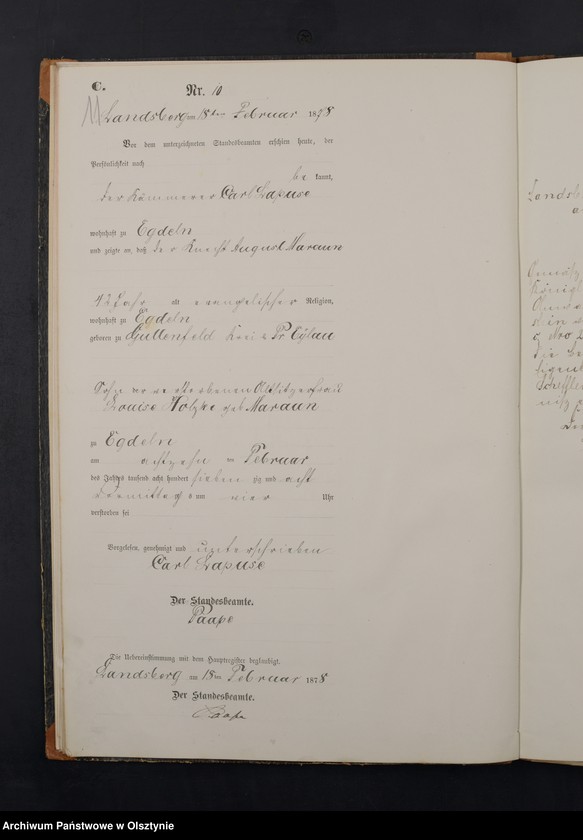 C.
Nr. 10
11
Landsberg am 18ten Februar 1878
Vor dem unterzeichneten Standesbeamten erschien heute, der
Persönlichkeit nach
be kannt,
der Kämmerer Carl Lapuse
wohnhaft zu Egdeln
und zeigte an, daß der Knecht August Maraun
42 Jahr alt evangelischer Religion,
wohnhaft zu Egdeln
geboren zu Guttenfeld Kreis Pr Eylau
Sohn der verstorbenen
Louise Kotzke geb Maraun
zu Egdeln
am achtzehn ten Februar
des Jahres tausend acht hundert sieben zig und acht
Vormittags um vier Uhr
verstorben sei
Vorgelesen, genehmigt und unterschrieben
Carl Lapuse
Der Standesbeamte.
Paape
Die Uebereinstimmung mit dem Hauptregister beglaubigt.
Landsberg am 18ten Februar 1878
Der Standesbeamte.
Paape
Archiwum Państwowe w Olsztynie